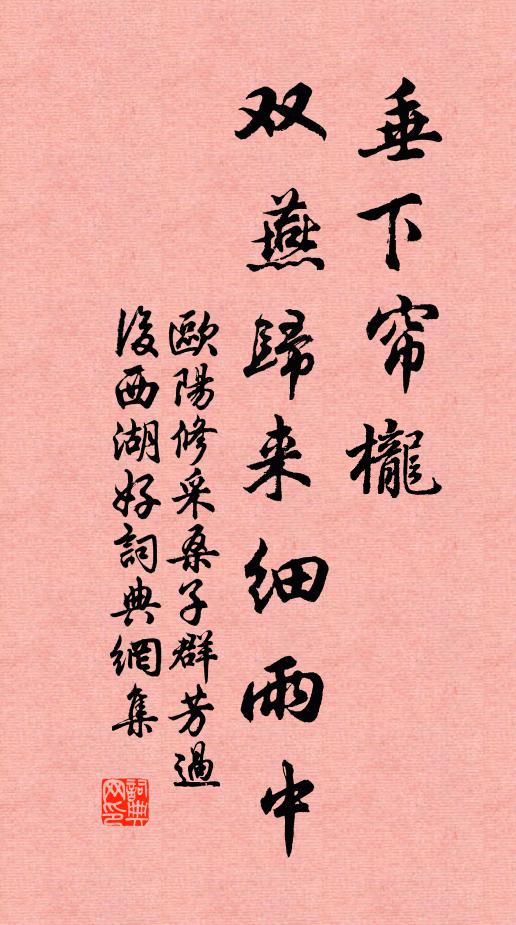 垂下帘櫳
双燕歸来细雨中
歐陽修采桑子群芳過
後西湖好詞典網集
詞典网印